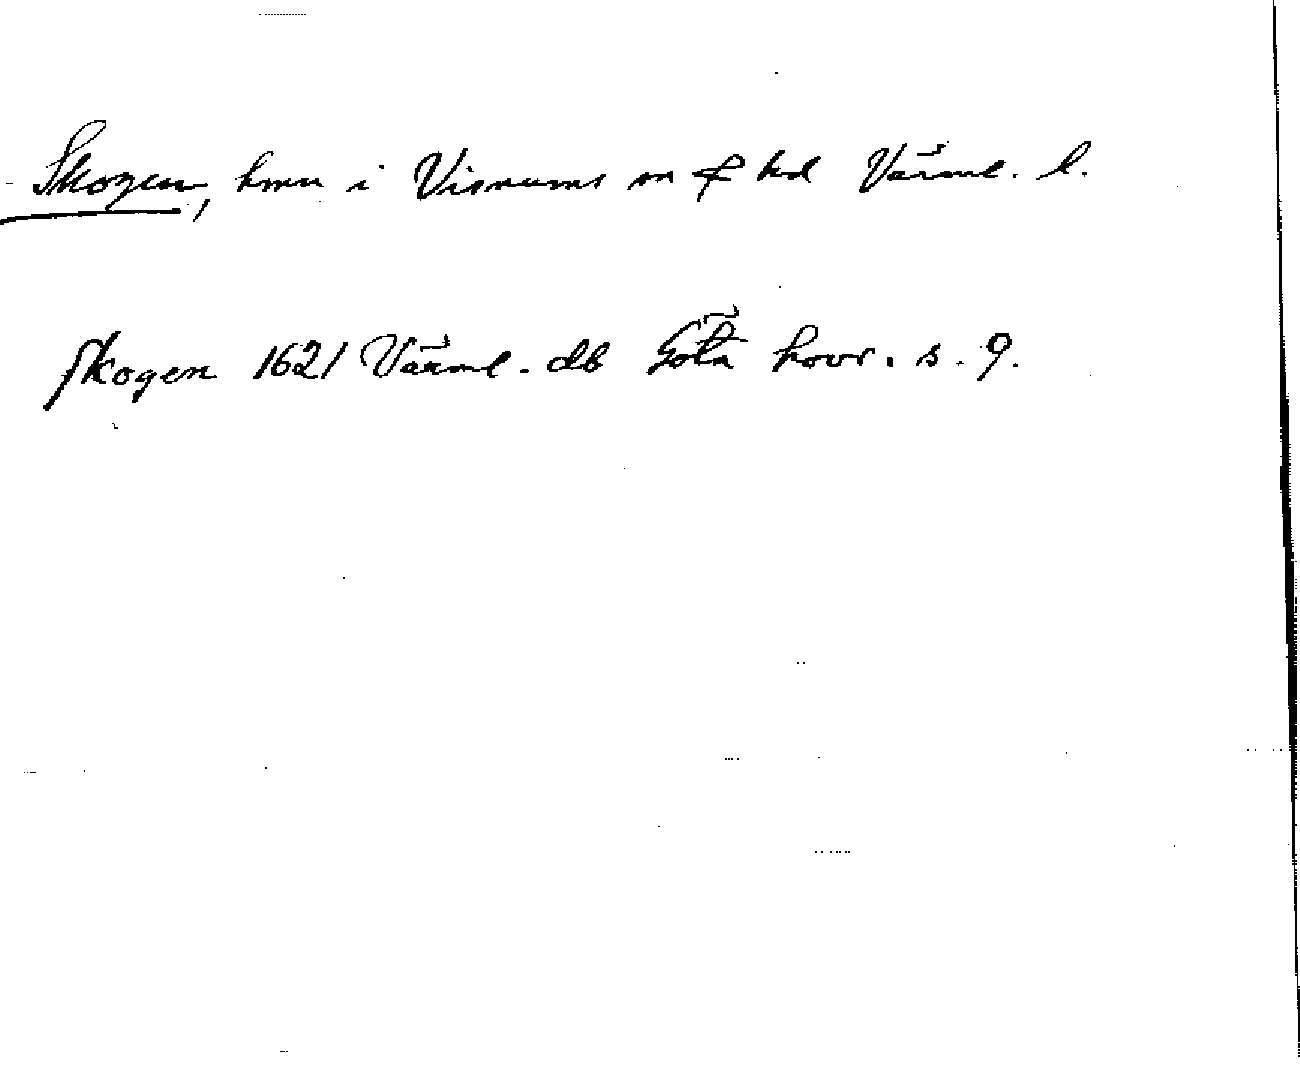 Skogen, hmn i Visnums sn & hd Värml. l.
Skogen 1621 Värml. db Göta hovr. s. 9.